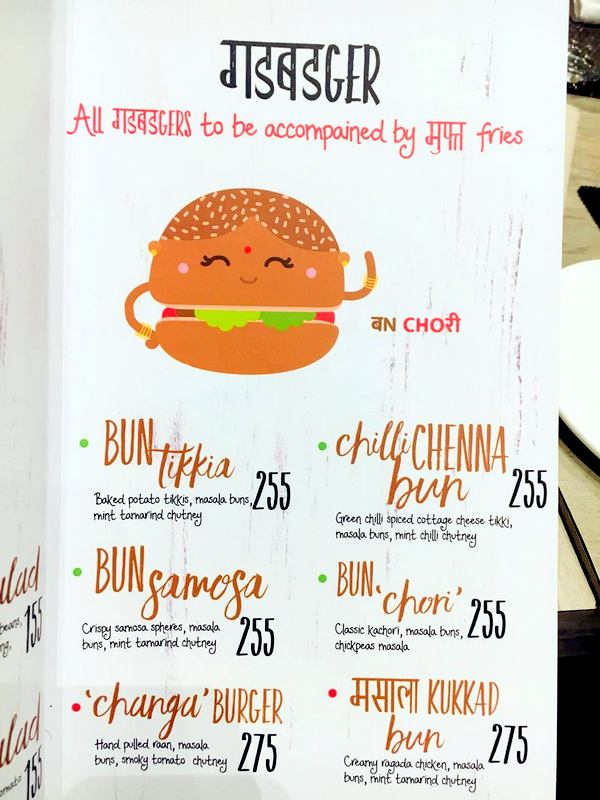 गडबडGER
All गडबडGERS to be accompained by मुफ्त fries
बN CHOरी
BUN tikkia
Baked potato tikkis, masala buns,
mint tamarind chutney
255
chilli CHENNA
bun
255
Green chilli spiced cottage cheese tikki,
masala buns, mint chilli chutney
BUN samosa
Crispy samosa spheres, masala
buns, mint tamarind chutney
255
BUN 'chori'
Classic kachori, masala buns,
chickpeas masala
255
'changa' BURGER
Hand pulled raan, masala
buns, smoky tomato chutney
275
मसाला KUKKAD
bun
275
Creamy ragada chicken, masala
buns, mint tamarind chutney
155
155